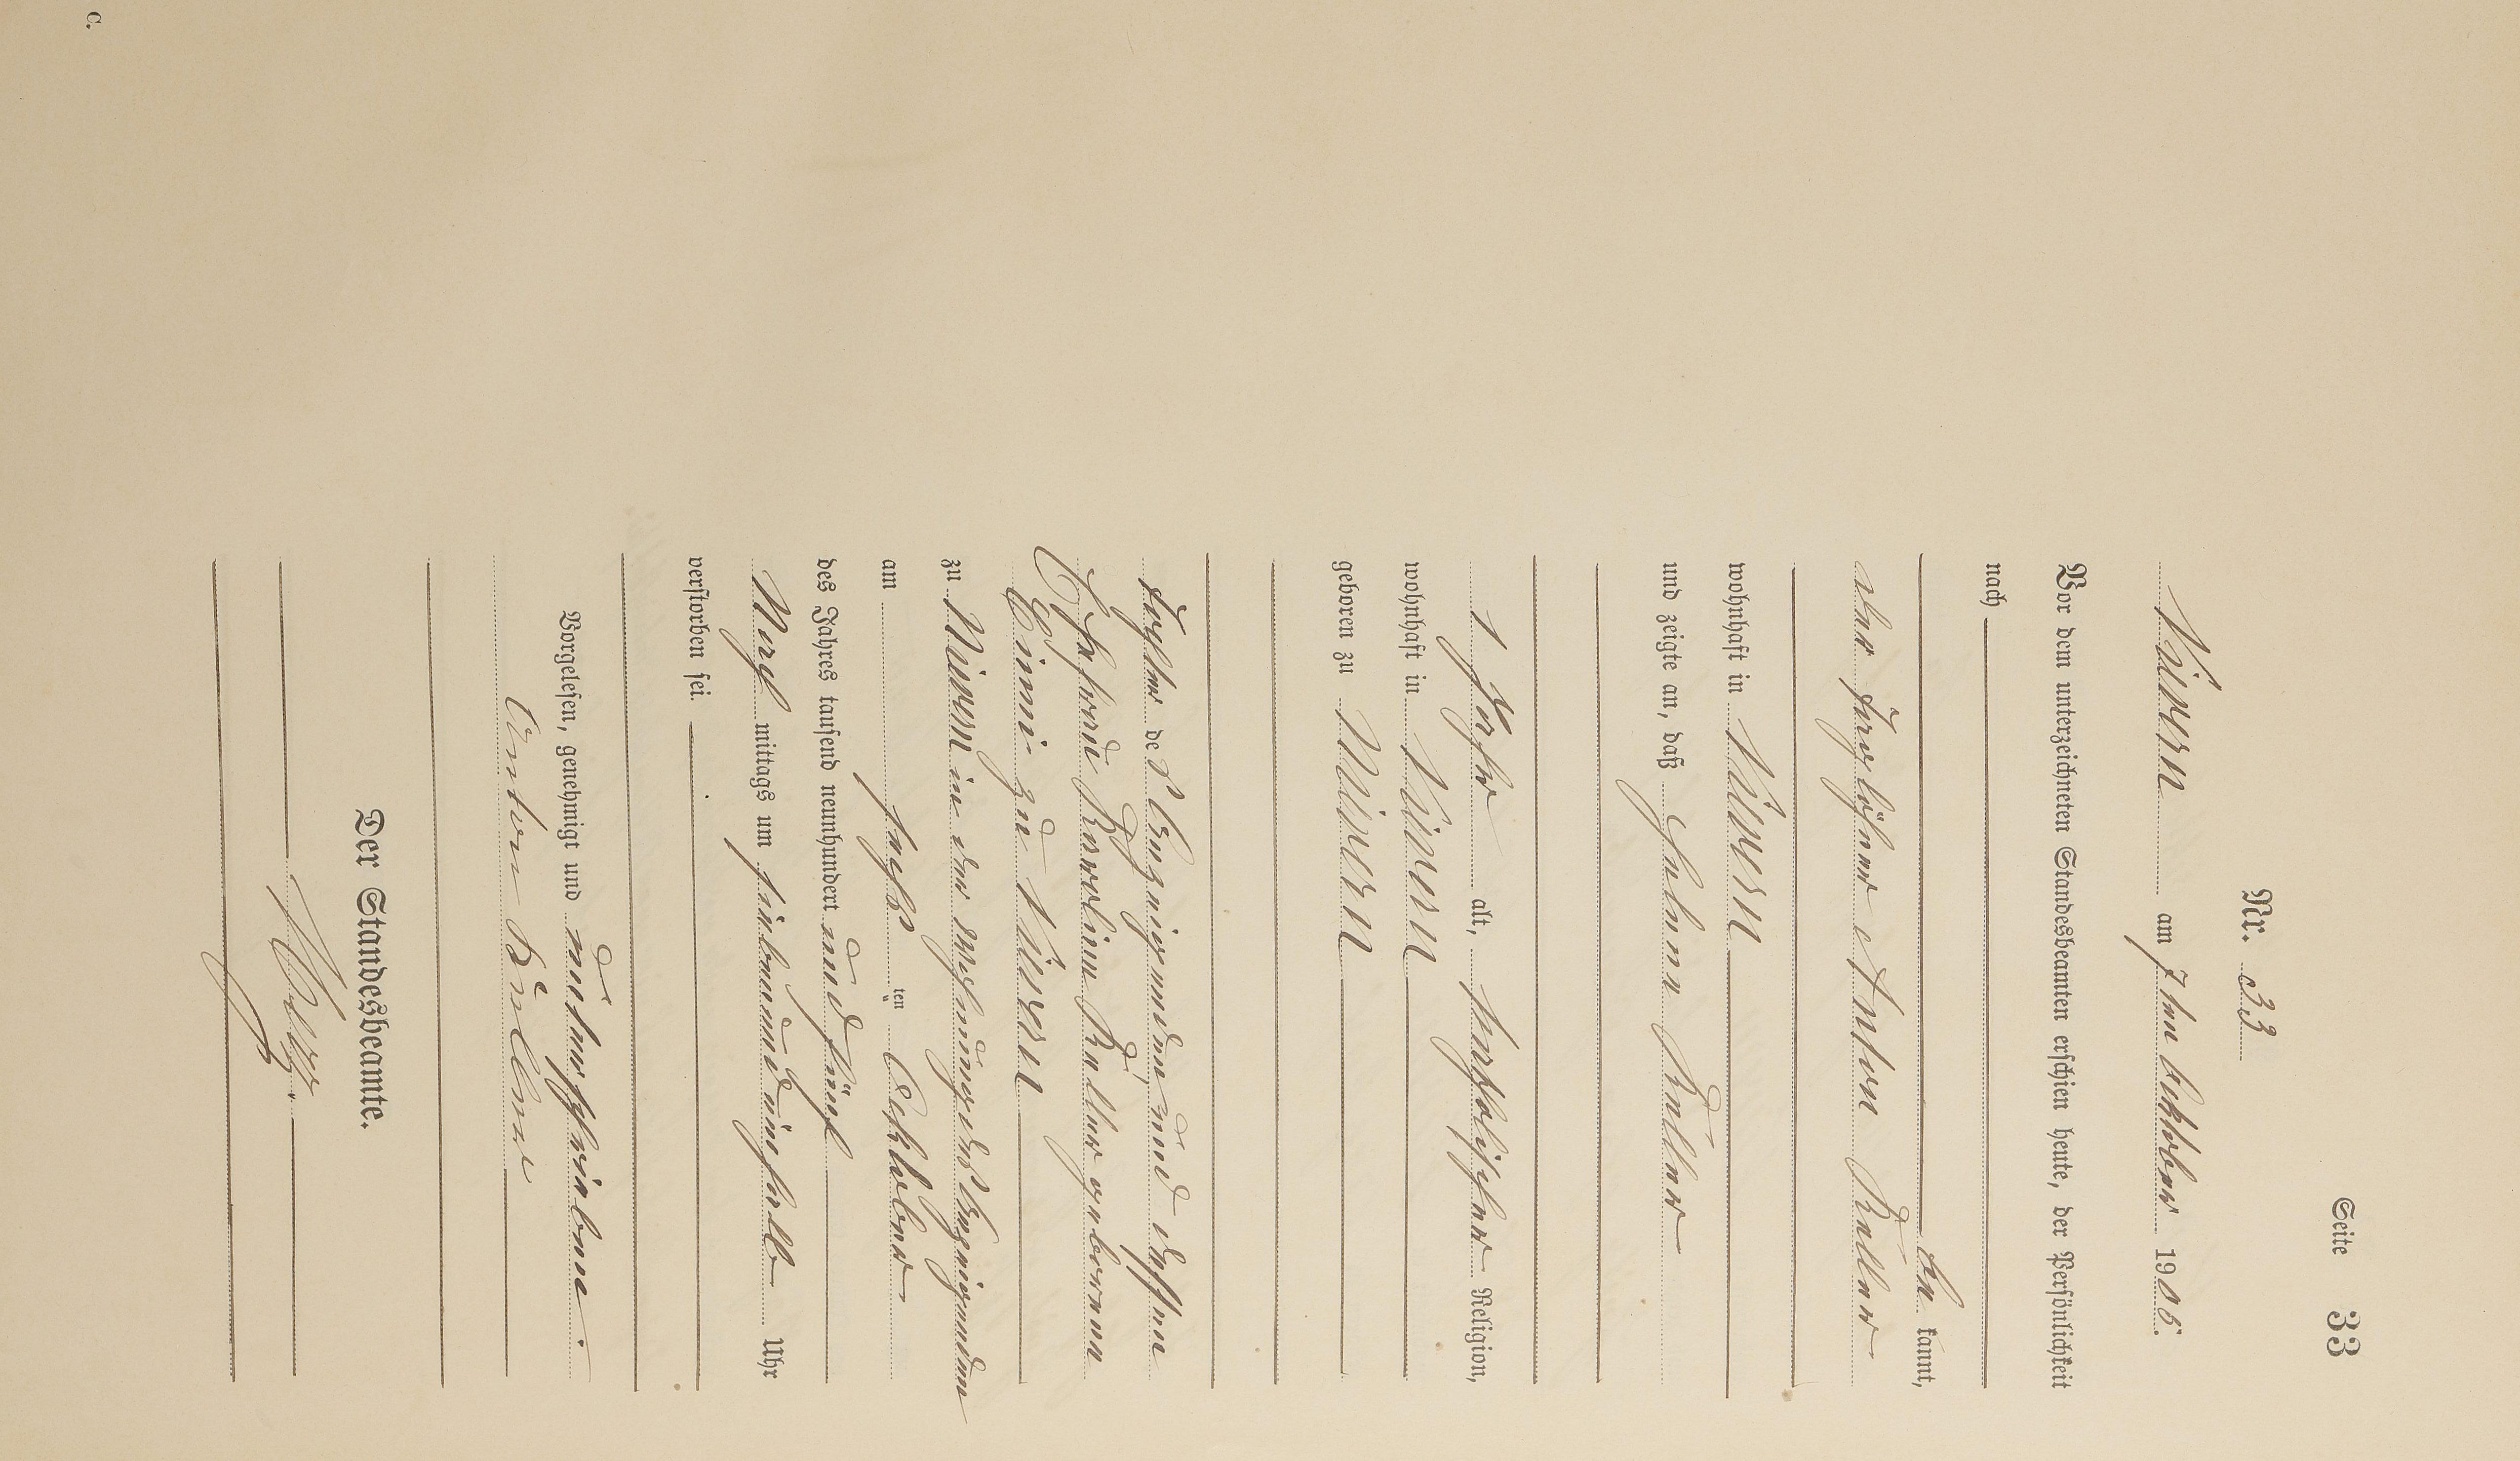 C.
Seite 33
Nr. 33
Nivern am 7ten Oktober 1905.
Vor dem unterzeichneten Standesbeamten erschien heute, der Persönlichkeit
nach
be kannt,
der Taglöhner Anton Küller
wohnhaft in Nivern
und zeigte an, daß Helena Küller
1 Jahr alt, katholischer Religion,
wohnhaft in Nivern
geboren zu Nivern
Tochter des Anzeigenden und dessen
Ehefrau Karolina Küller geborenen
zu Nivern
zu Nivern in der Wohnung des Anzeigenden
am sechs ten Oktober
des Jahres tausend neunhundert und fünf
Nach mittags um siebenundeinhalb Uhr
verstorben sei.
Vorgelesen, genehmigt und unterschrieben.
Anton Küller
Der Standesbeamte.